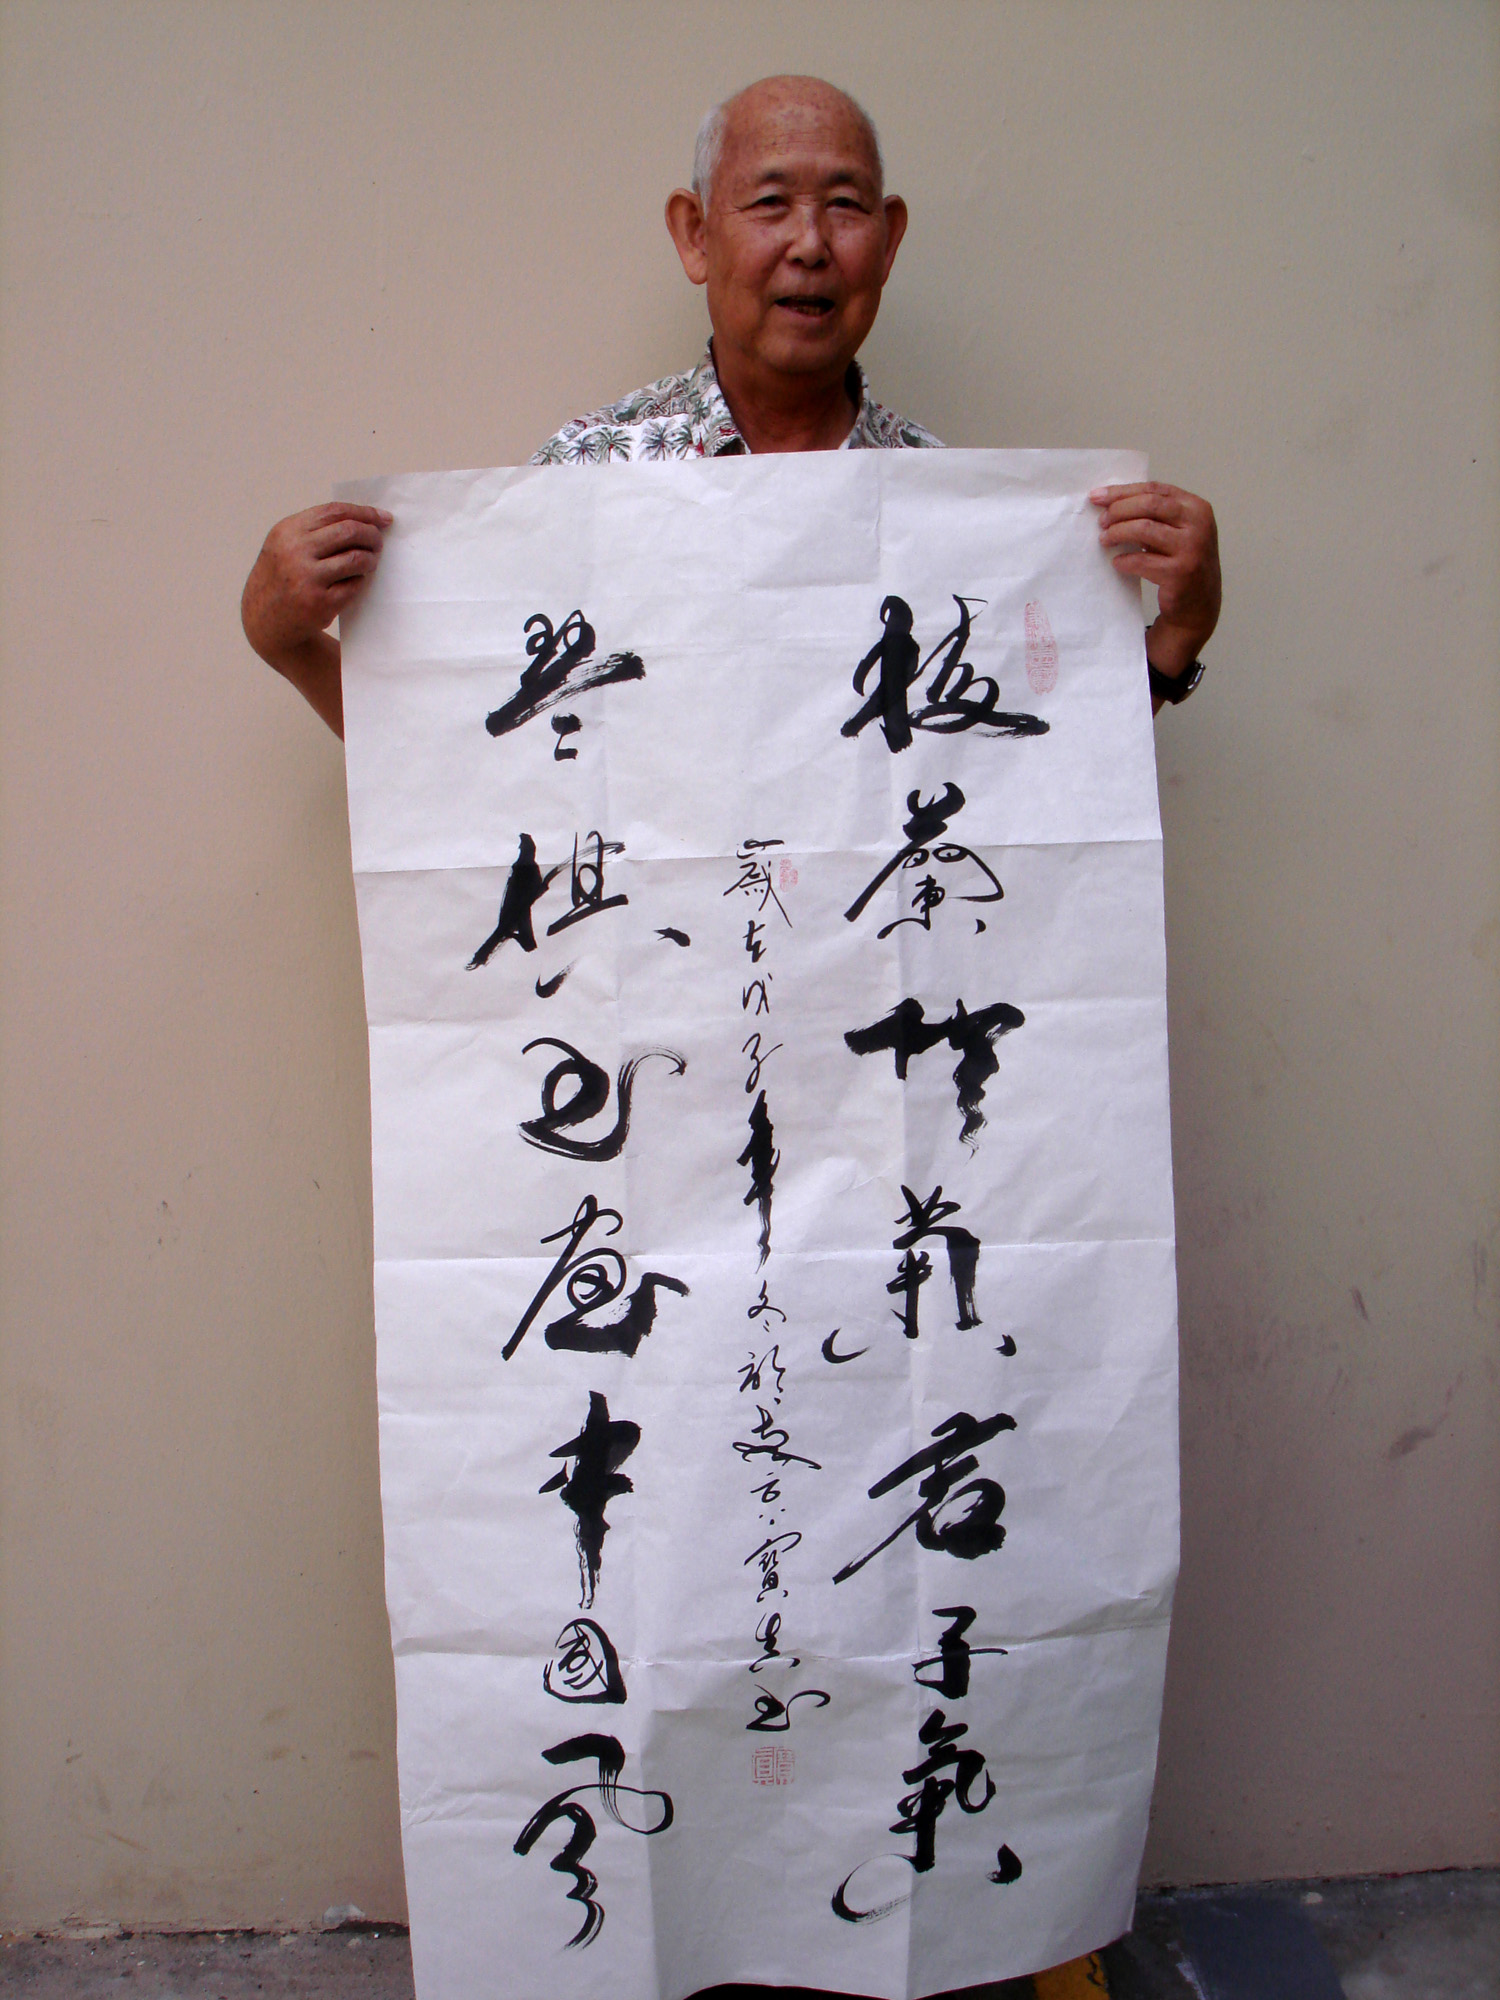 梅蘭竹菊君子氣
歲在戊子年冬於寶真書
琴棋書畫中國風